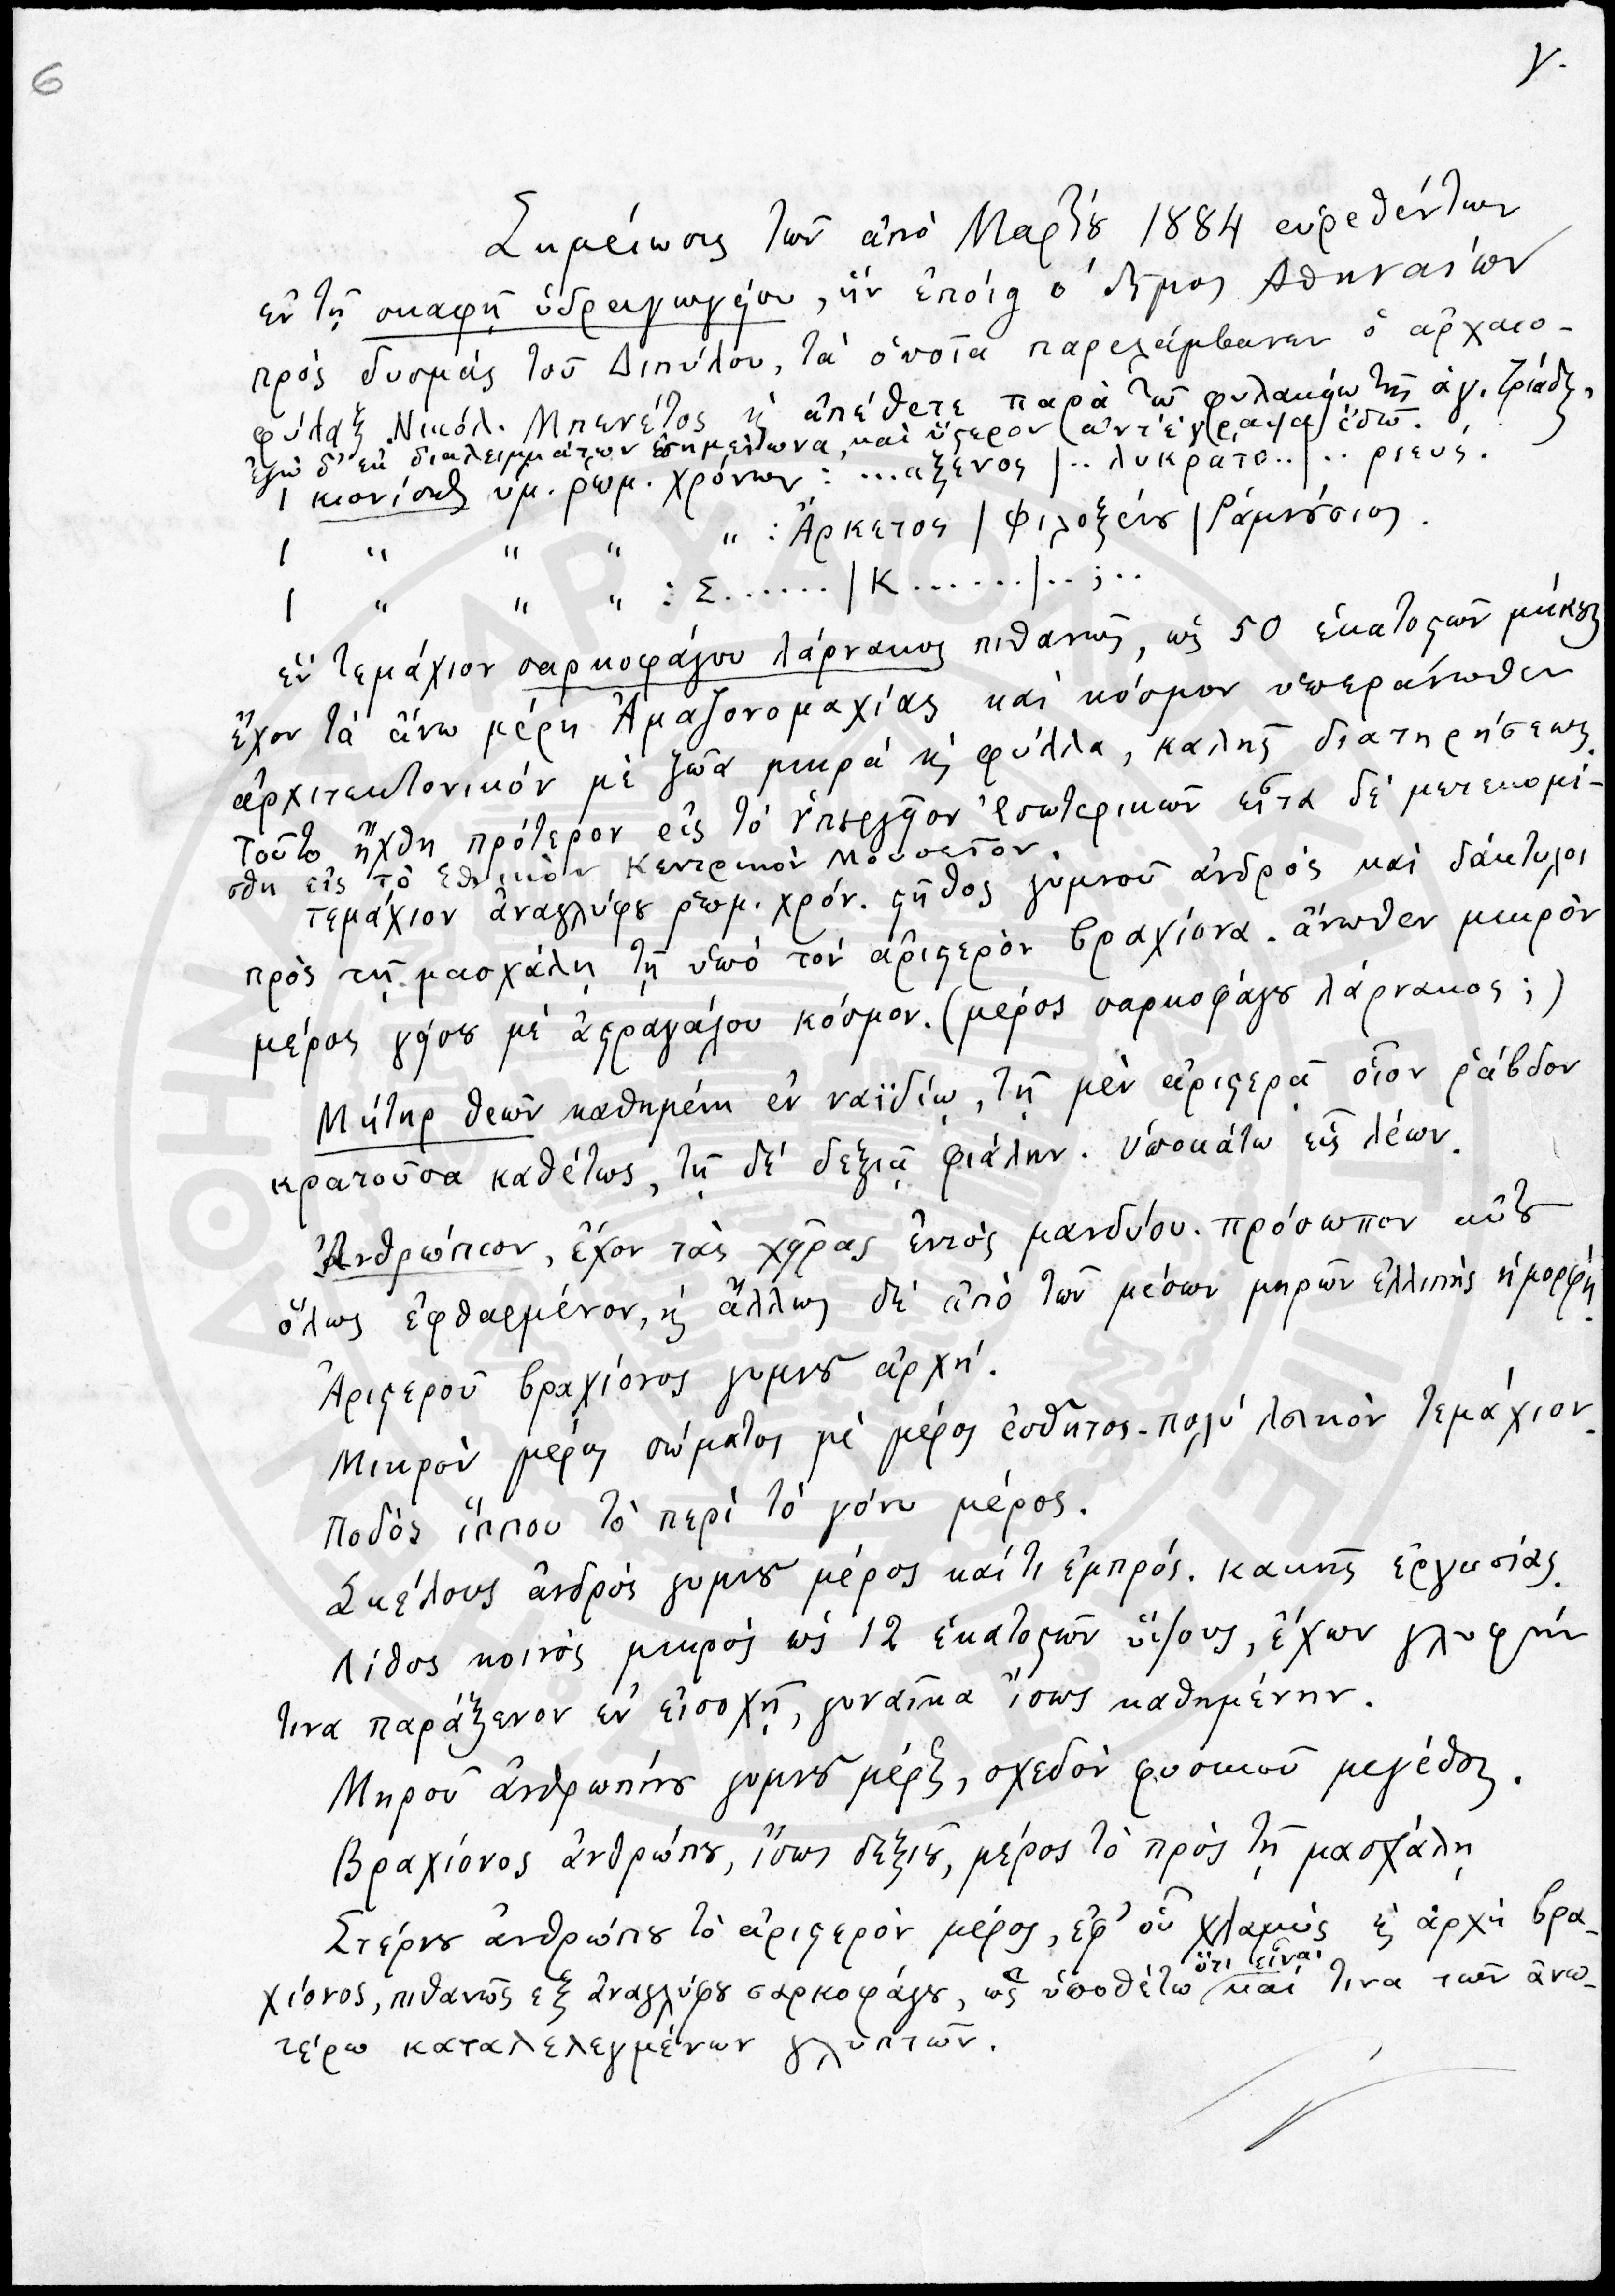 6
γ.
Σημείωσις τῶν ἀπὸ Μαρτίου 1884 εὑρεθέντων
ἐν τῇ σκαφῇ ὑδραγωγείου, ἣν ἐποίει ὁ δῆμος Ἀθηναίων
πρὸς δυσμὰς τοῦ Διπύλου, τὰ ὁποῖα παρελάμβανεν ὁ ἀρχαιο-
φύλαξ Νικόλ. Μπενέτος κ ἀπέθετε παρὰ τῷ φυλακείῳ τῆς ἁγ. Τριάδος,
ἐγὼ δ' ἐκ διαλειμμάτων ἐσημείωνα, καὶ ὕστερον (ἀντέγραψα) ἐδῶ.
1 κιονίσκος ὑμ. ῥωμ. χρόνων : ...αξενος |.. λυκρατο..|.. ριευς.
1 " " " " : Ἄρκετος | Φιλοξένου | Ῥαμνούσιος.
1 " " " : Σ....... | Κ.......|..;..
ἓν τεμάχιον σαρκοφάγου λάρνακος πιθανῶς, ὡς 50 ἑκατοστῶν μήκους
ἔχον τὰ ἄνω μέρη Ἀμαζονομαχίας καὶ κόσμον ὑπεράνωθεν
ἀρχιτεκτονικόν μὲ ζῶα μικρὰ κ φύλλα, καλῆς διατηρήσεως.
τοῦτο ἤχθη πρότερον εἰς τὸ ὑπουργεῖον Ἐσωτερικῶν εἶτα δὲ μετεκομί-
σθη εἰς τὸ Ἐθνικὸν Κεντρικὸν Μουσεῖον.
τεμάχιον ἀναγλύφου ῥωμ. χρόν. στῆθος γυμνοῦ ἀνδρὸς καὶ δάκτυλοι
πρὸς τῇ μασχάλῃ τῇ ὑπὸ τὸν ἀριστερὸν βραχίονα. ἄνωθεν μικρὸν
μέρος γείσου μὲ ἀστραγάλου κόσμον. (μέρος σαρκοφάγου λάρνακος;)
Μήτηρ θεῶν καθημένη ἐν ναϊδίῳ, τῇ μὲν ἀριστερᾷ οἷον ῥάβδον
κρατοῦσα καθέτως, τῇ δὲ δεξιᾷ φιάλην. ὑποκάτω εἷς λέων.
Ἀνθρώπιον, ἔχον τὰς χεῖρας ἐντὸς μανδύου. πρόσωπον αὐτοῦ
ὅλως ἐφθαρμένον, κ ἄλλως δὲ ἀπὸ τῶν μέσων μηρῶν ἐλλιπὴς ἡ μορφή.
Ἀριστεροῦ βραχίονος γυμνοῦ ἀρχή.
Μικρὸν μέρος σώματος μὲ μέρος ἐσθῆτος. πολὺ τεμάχιον.
Ποδὸς ἵππου τὸ περὶ τὸ γόνυ μέρος.
Σκέλους ἀνδρὸς γυμνοῦ μέρος καί τι ἐμπρός. κακῆς ἐργασίας.
Λίθος κοινὸς μικρὸς ὡς 12 ἑκατοστῶν ὕψους, ἔχων γλυφήν
τινα παράξενον ἐν εἰσοχῇ, γυναῖκα ἴσως καθημένην.
Μηροῦ ἀνθρωπίνου γυμνοῦ μέρος, σχεδὸν φυσικοῦ μεγέθους.
Βραχίονος ἀνθρώπου, ἴσως δεξιοῦ, μέρος τὸ πρὸς τῇ μασχάλῃ
Στέρνου ἀνθρώπου τὸ ἀριστερὸν μέρος, ἐφ' οὗ χλαμὺς κ ἀρχὴ βρα-
χίονος, πιθανῶς ἐξ ἀναγλύφου σαρκοφάγου, ὡς ὑποθέτω ὅτι εἶναι καί τινα τῶν ἀνω-
τέρω καταλελεγμένων γλυπτῶν.